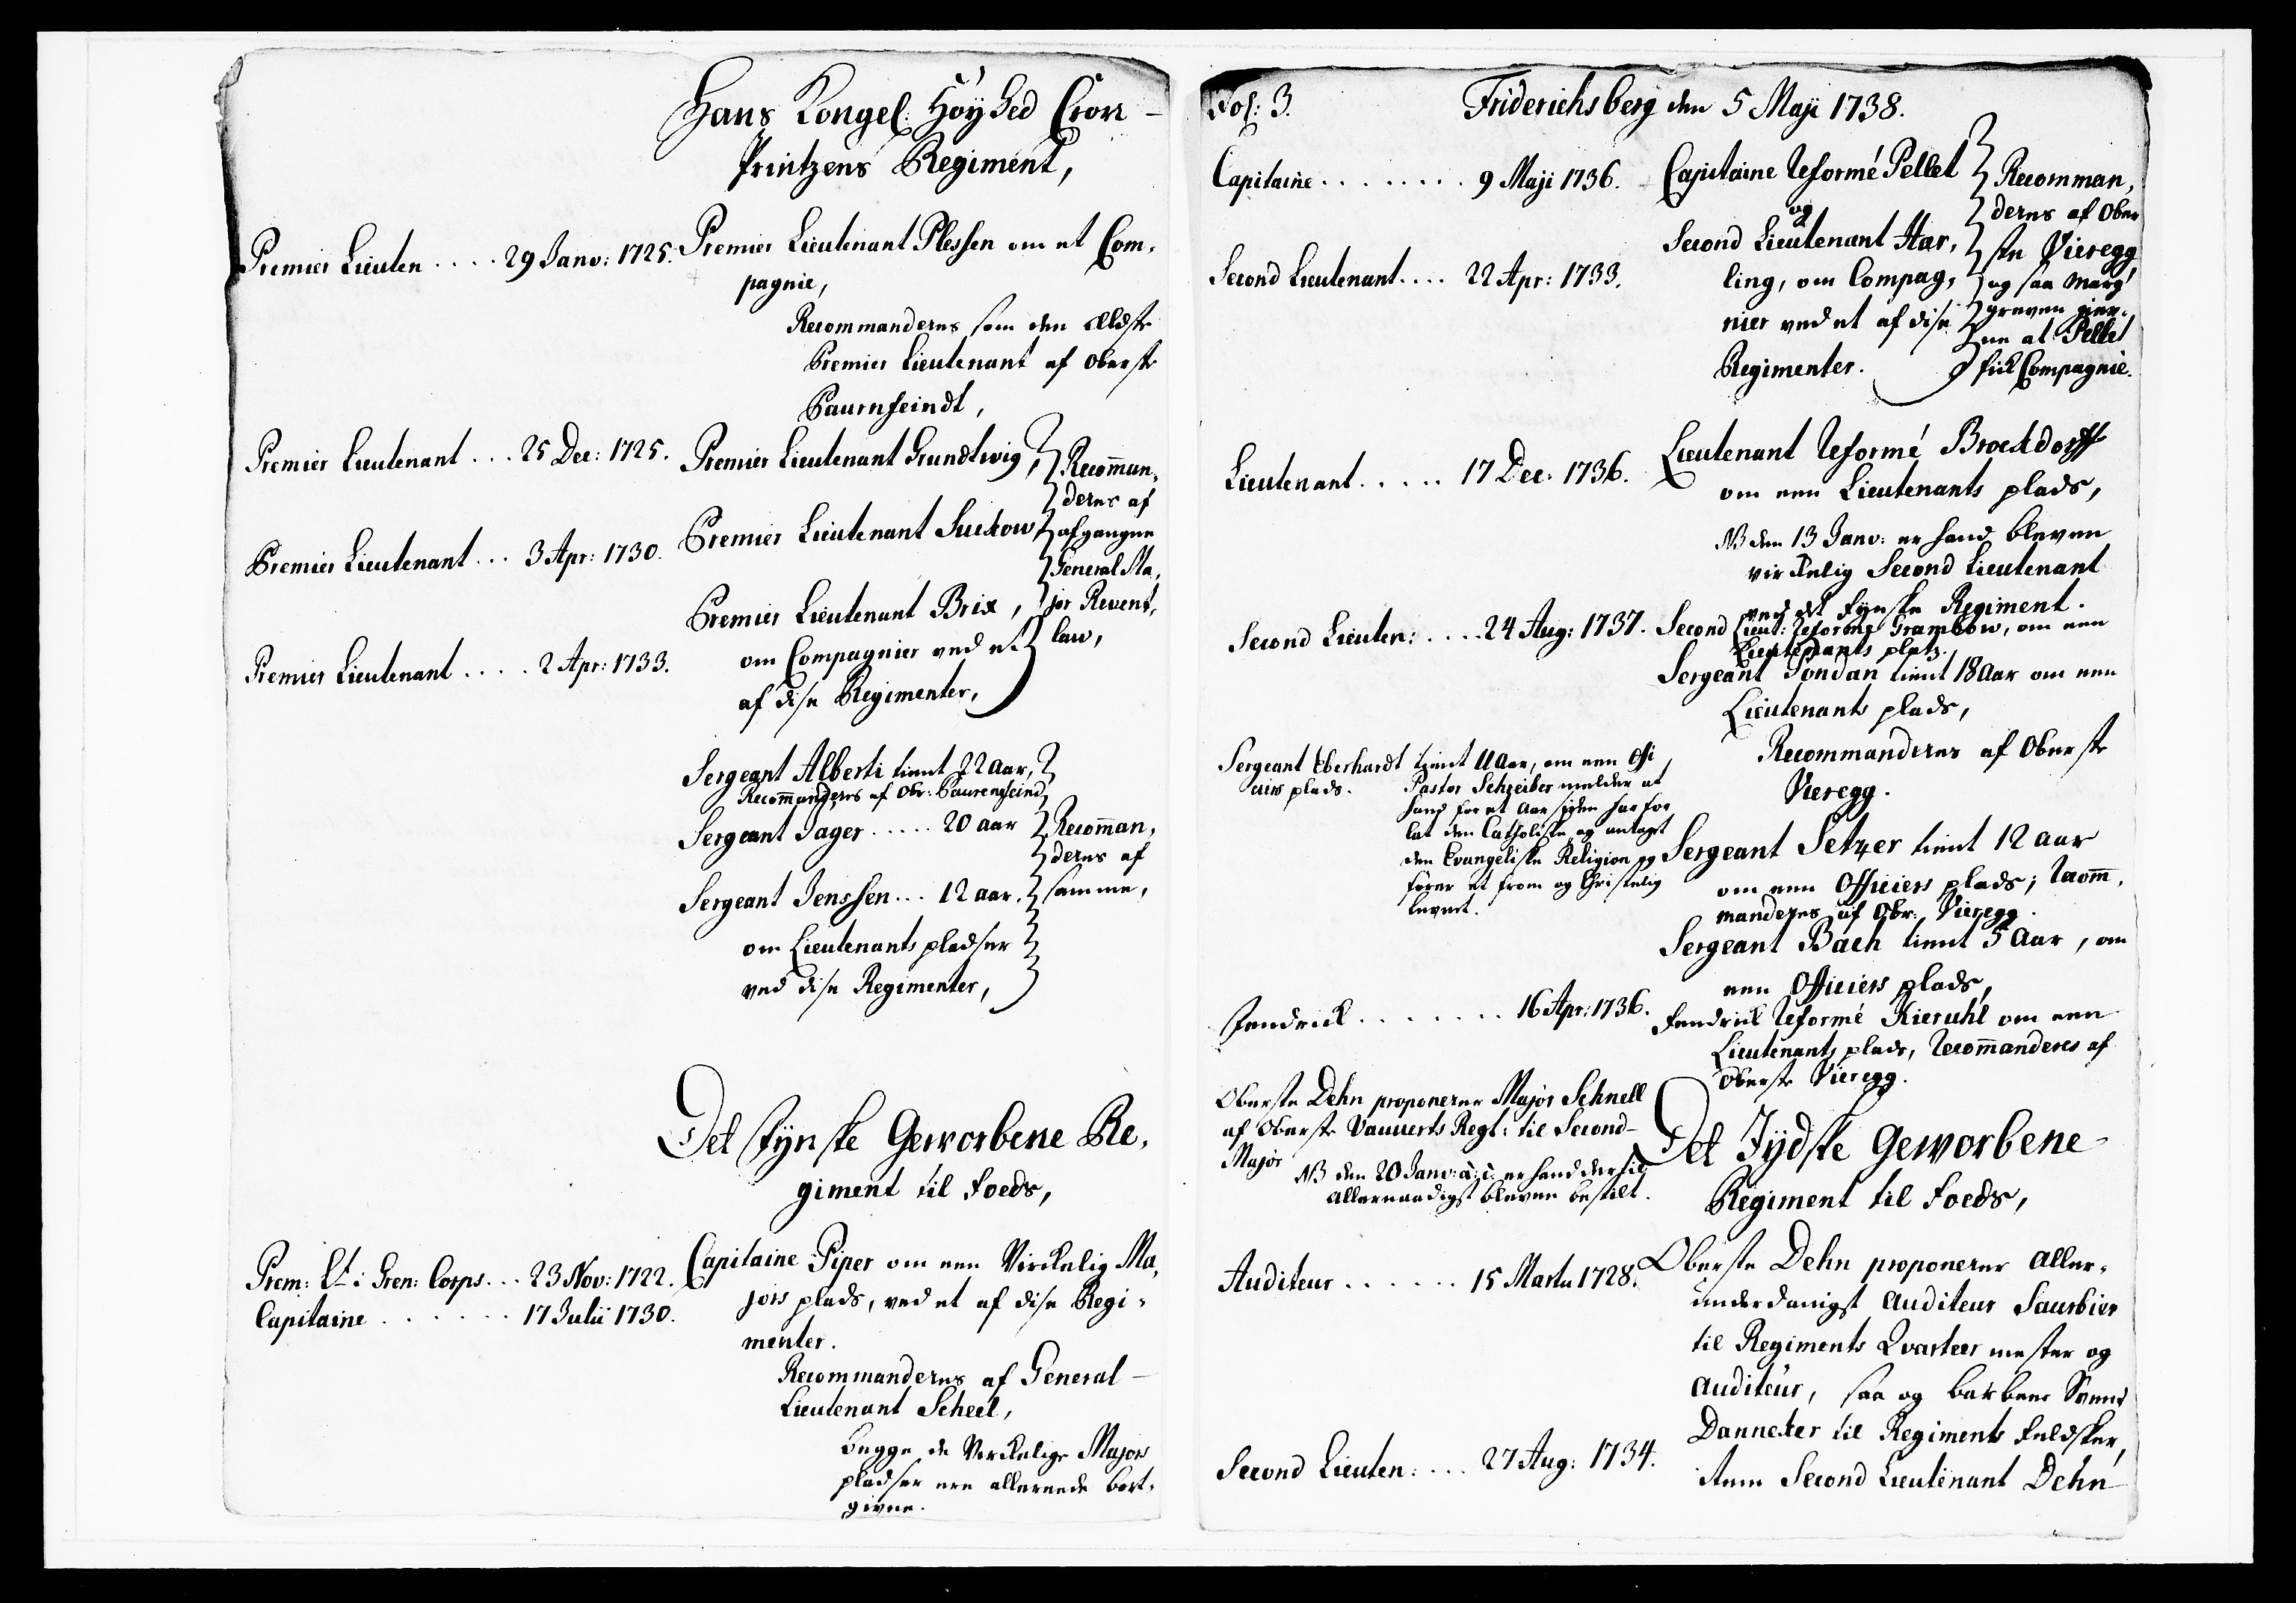 Hans Kongel: Höyhed Cron-
Printzens Regiment,
Premier Lieuten .... 29 Janv: 1725. Premier Lieutenant Plessen om et Com-
pagnie,
Recommanderes som den Eldste
Premier Lieutenant af Oberste
Baurnfeindt,
Premier Lieutenant ... 25 Dec: 1725. Premier Lieutenant Grundtwig,
Premier Lieutenant ... 3 Apr: 1730. Premier Lieutenant Suckow
Premier Lieutenant .... 2 Apr: 1733. Premier Lieutenant Brix,
om Compagnier ved et
af dise Regimenter,
Recom̄an-
deres af
afgangne
General Ma-
jor Revent-
law,
Sergeant Alberti tient 22 aar,
Recom̄anderes af Obr: Baurenfeind,
Sergeant Jager ..... 20 aar
Sergeant Jenssen ... 12 aar.
om Lieutenants pladser
ved dise Regimenter,
Recom̄an-
deres af
samme,
Det Fynske Geworbene Re-
giment til Foeds,
Prem: Lt: Gren: Corps ... 23 Nov: 1722. Capitaine Piper om een Virkelig Ma-
Capitaine ...... 17 Julii 1730. jors plads, ved et af dise Regi-
menter.
Recommanderes af General-
Lieutenant Scheel,
begge de Verkelige Majors
pladser ere allereede bort-
givne.
Fol: 3. Friderichsberg den 5 Maji 1738.
Capitaine ........ 9 Maji 1736. Capitaine Reformé Pellet
og
Second Lieutenant .... 22 Apr: 1733. Second Lieutenant Har-
ling, om Compag-
nier ved et af dise
Regimenter.
Recomman-
deres af Ober
ste Vieregg
og saa Marg
greven gier-
ne at Pellet
fick Compagnie.
Lieutenant ..... 17 Dec: 1736. Lieutenant Reformé Brockdorff
om een Lieutenants plads,
NB den 13 Janv: er hand bleven
virkelig Second Lieutenant
ved det Fynske Regiment.
Second Lieuten: .... 24 Aug: 1737. Second Lieut: Reformé Grambow, om een
Lieutenants platz.
Sergeant Tondan tient 18 Aar om een
Lieutenants plads,
Recommanderes af Oberste
Vieregg.
Sergeant Eberhardt tient 11 Aar, om een Offi-
ciers plads. Pastor Schreiber melder at
hand for et Aar siden har for
lat den Catholiske og antaget
den Evangeliske Religion og
förer et from og Christelig
levnet.
Sergeant Setzer tient 12 aar
om een Officiers plads; Recom̄-
manderes af Obr: Vieregg.
Sergeant Bach tient 5 Aar, om
een Officiers plads,
Fendrick ....... 16 Apr: 1736. Fendrick Reformé Kieruhl om een
Lieutenants plads, Recom̄anderes af
Oberste Vieregg.
Oberste Dehn proponerer Major Schnell
af Oberste Vauverts Regt: til Second-
Major NB den 20 Janv: a: c: er hand dertil
allernaadigst bleven bestilt.
Det Jydske Geworbene
Regiment til Foeds,
Auditeur ...... 15 Martii 1728. Oberste Dehn proponerer Aller-
underdanigst Auditeur Saurbier
til Regiments Qvarteer mester og
Auditeur, saa og barbeer Svend
Danneker til Regiments Feldskier,
Second Lieuten: ... 27 Aug: 1734. item Second Lieutenant Dehn